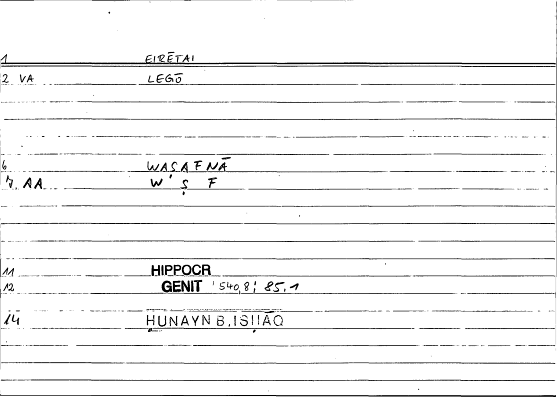 1 EIRĒTAI
2 VA LEGŌ
6 WAṢAFNĀ
7 AA W ' Ṣ F
11 HIPPOCR
12 GENIT 540,8; 85.1
14 ḤUNAYN B. ISḤĀQ